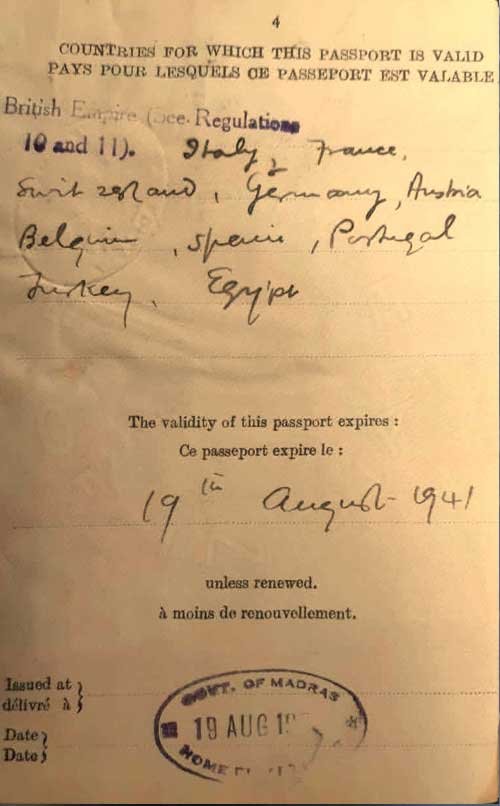 4
COUNTRIES FOR WHICH THIS PASSPORT IS VALID
PAYS POUR LESQUELS CE PASSEPORT EST VALABLE
British Empire (See Regulations
10 and 11). Italy, France,
Switzerland, Germany, Austria
Belgium, Spain, Portugal
Turkey, Egypt
The validity of this passport expires :
Ce passeport expire le :
19th August 1941
unless renewed.
à moins de renouvellement.
Issued at
délivré à
GOVT. OF MADRAS
19 AUG 19
HOME
Date
Date